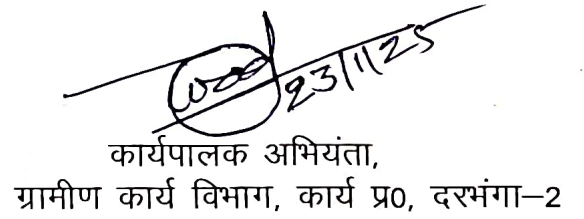 23/11/25
कार्यपालक अभियंता,
ग्रामीण कार्य विभाग, कार्य प्र0, दरभंगा–2